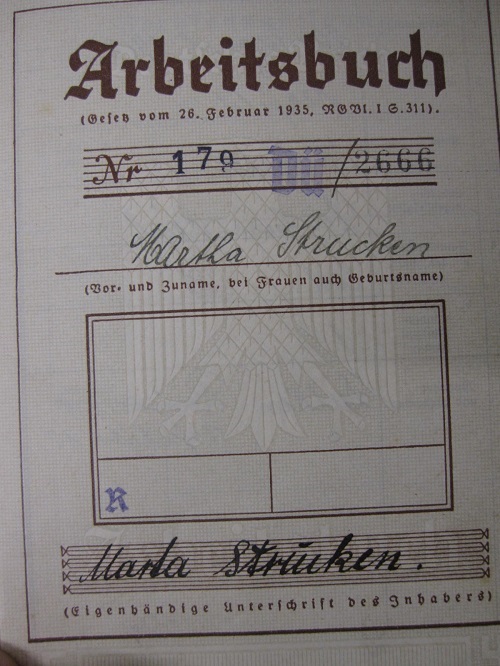 Arbeitsbuch
(Gesetz vom 26. Februar 1935, RGBl. I S. 311).
Nr 179 Dü/2666
Martha Strucken
(Vor- und Zuname, bei Frauen auch Geburtsname)
R
Marta Strücken.
(Eigenhändige Unterschrift des Inhabers)